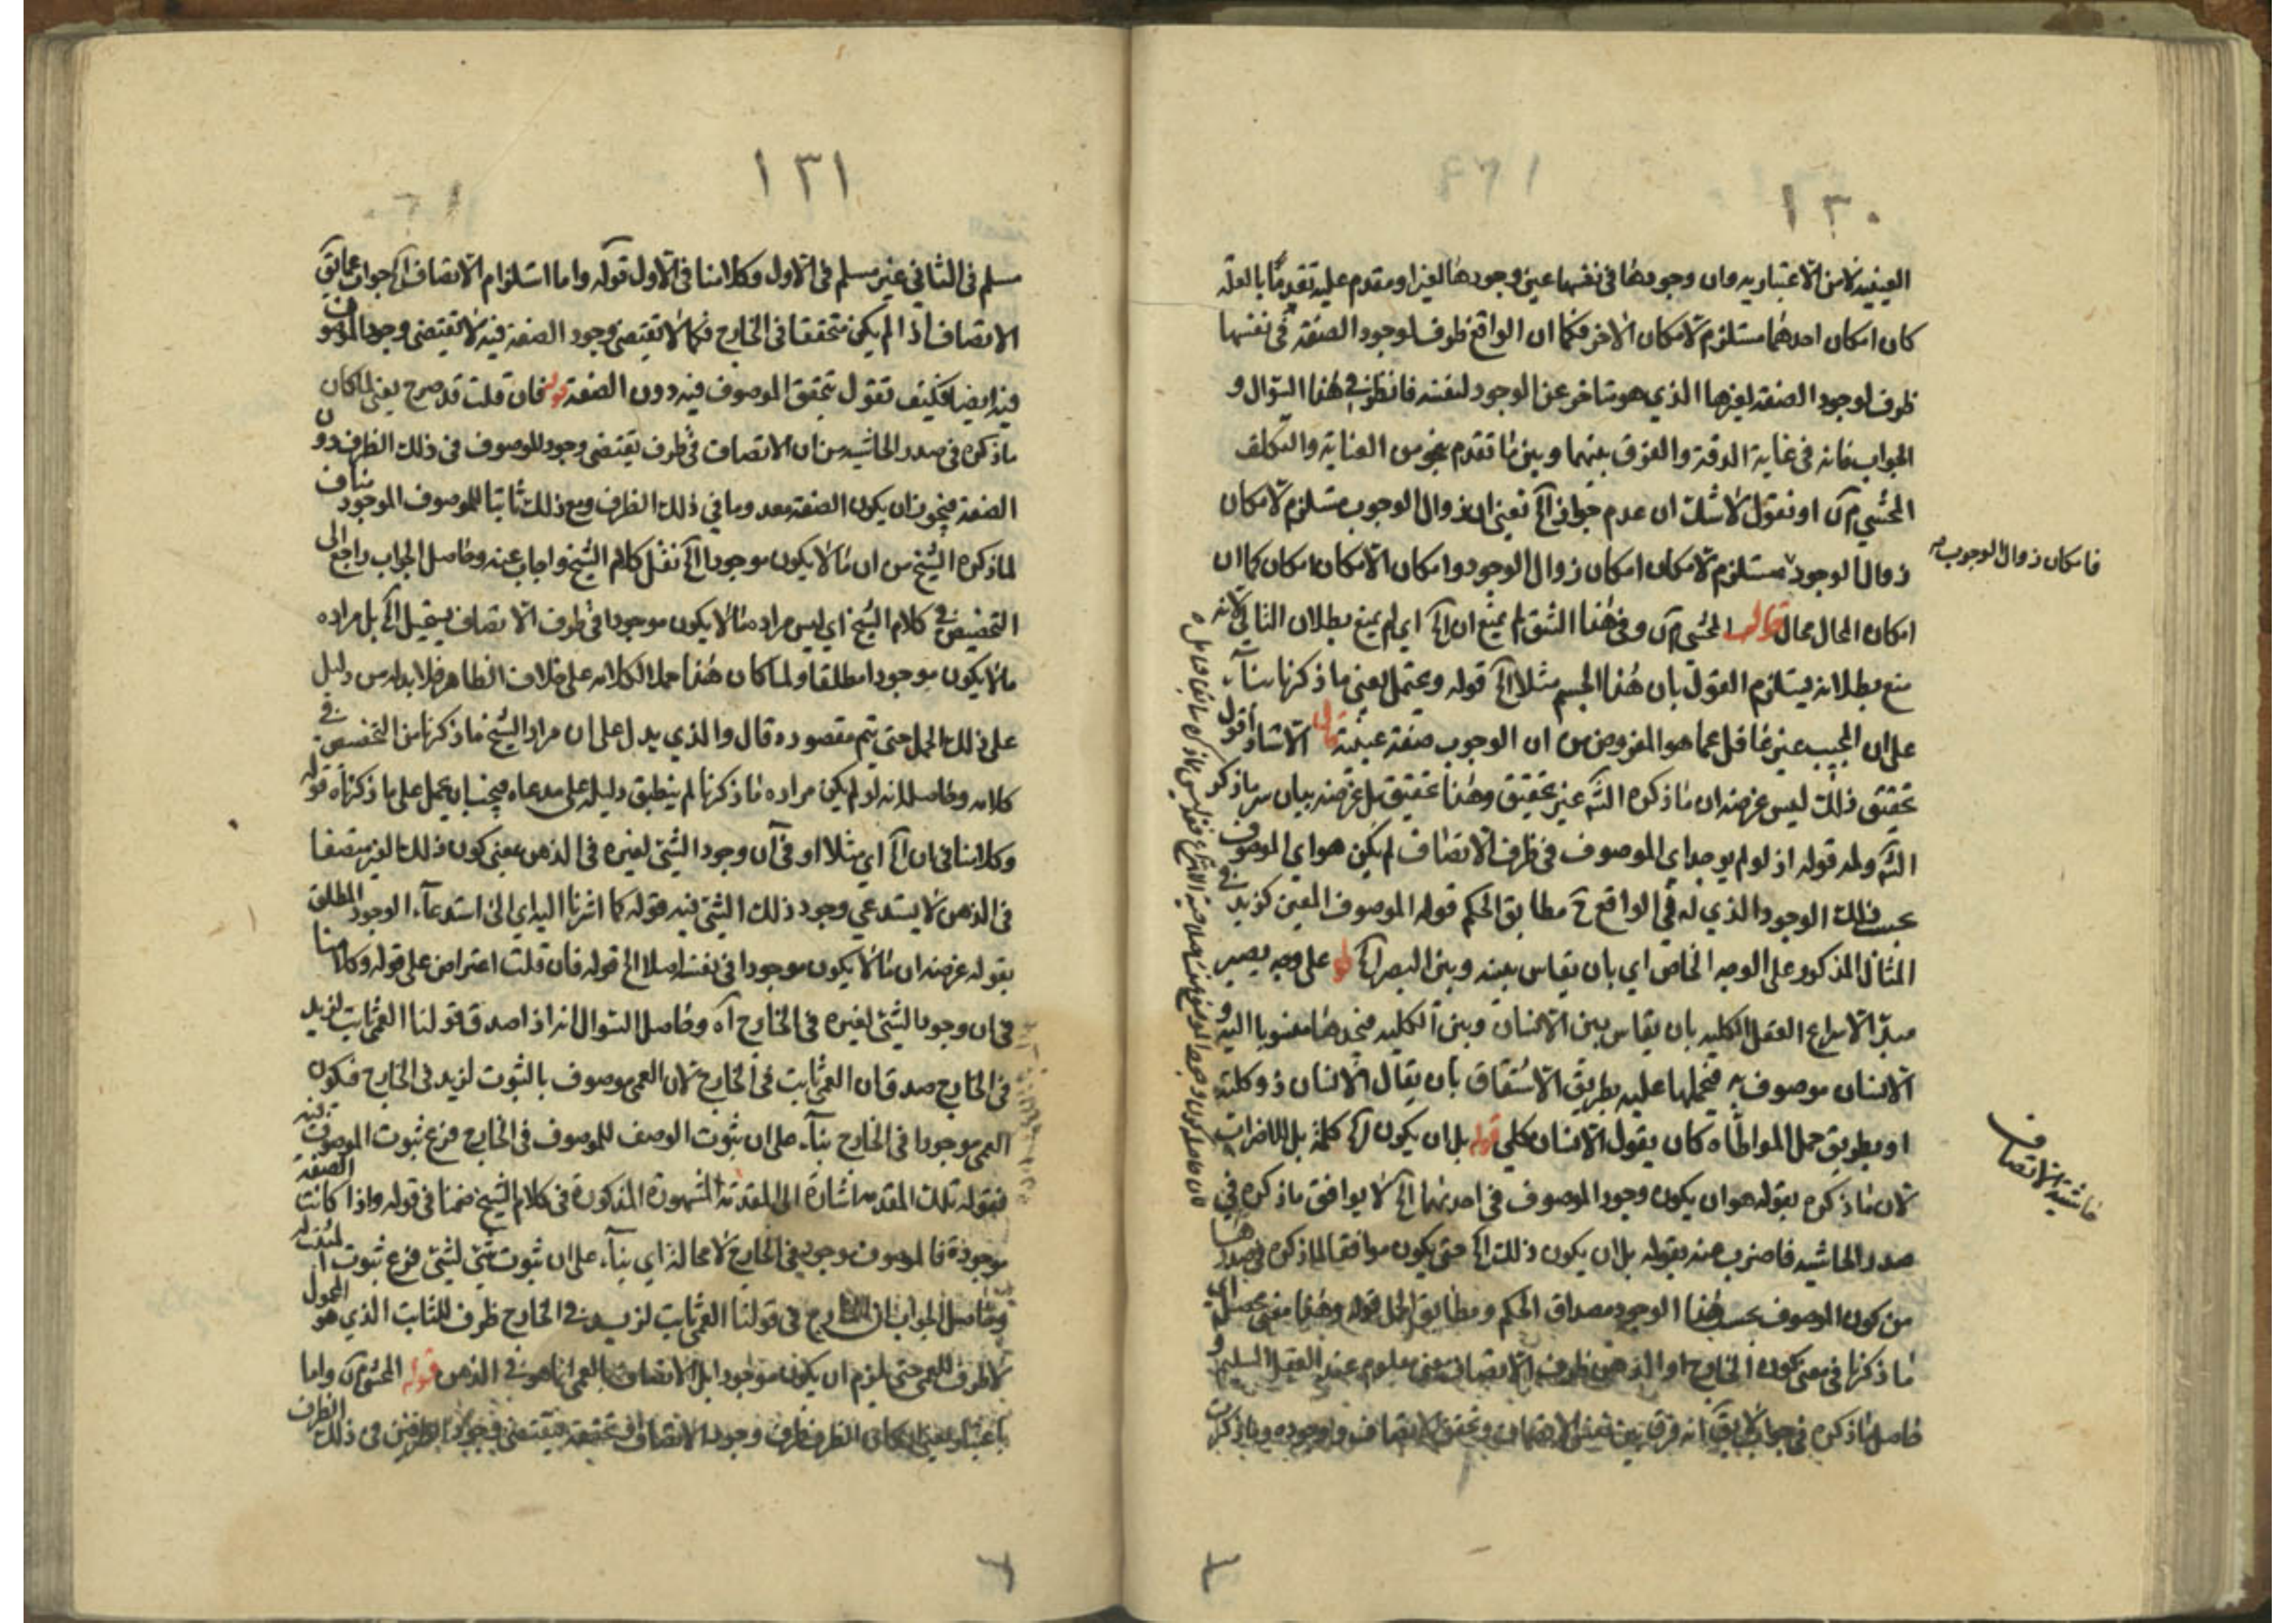 ١٣٠
العينية لا من الاعتبارية وان وجودها في نفسها عين وجودها لغيرا ومقدم عليه تقدما بالعلة
كان امكان احدهما مستلزم لامكان الاخر فكما ان الواقع ظرف لوجود الصفة في نفسها
ظرف لوجود الصفة لغيرها الذي هو متاخر عن الوجود لنفسه فانظر في هذا السؤال و
الجواب فانه في غاية الدقة والفرق بينهما وبين ما تقدم نحو من العناية والتكلف
المحشي او نقول لا شك ان عدم جواز الخ نعني ان زوال الوجوب مستلزم لامكان
زوال الوجود مستلزم لامكان امكان زوال الوجود وامكان الامكان امكان كما ان
فامكان زوال الوجوب
امكان المحال محال قوله المحشي وفي هذا الشق لم يمنع ان الخ اي لم يمنع بطلان التالي لانه
منع بطلانه يستلزم القول بان هذا الجسم مثلا الخ قوله ويحتمل يعني ما ذكرنا بناء
على ان المجيب غير غافل عما هو المفروض من ان الوجوب صفة عينية قال الاستاذ اقول
تحقيق ذلك ليس غرضه ان ما ذكره الش غير تحقيق وهذا تحقيق بل غرضه بيان سر ما ذكره
الش ولمه قوله اذ لو لم يوجد اي الموصوف في ظرف الاتصاف لم يكن هو اي الموصوف
بحسب ذلك الوجود الذي له في الواقع ح مطابق الحكم قوله الموصوف المعين كزيد في
المثال المذكور على الوجه الخاص اي بان يقاس بينه وبين البصر الخ قوله على وجه يصير
مبدأ لانتزاع العقل الكلية بان يقاس بين الانسان وبين الكلية فيجدها منسوبا اليه و
الانسان موصوف به فيحملها عليه بطريق الاشتقاق بان يقال الانسان ذو كلية
او بطريق حمل المواطاة كان يقول الانسان كلي قوله بل ان يكون الخ كلمة بل للاضراب
لان ما ذكره بقوله هو ان يكون وجود الموصوف في احدهما الخ لا يوافق ما ذكره في
حاشية الاتصاف
صدر الحاشيه فاضرب عنه بقوله بل ان يكون ذلك الخ حتى يكون موافقا لما ذكره في صدرها
من كون الموصوف بحسب هذا الوجود مصداق الحكم ومطابق الحمل قوله وهذا معنى محصل اي
ما ذكرنا في معنى كون الخارج او الذهن ظرف الاتصاف معنى معلوم عند العقل السليم و
حاصل ما ذكره في جواب
١٣١
مسلم في الثاني غير مسلم في الاول وكلامنا في الاول قوله واما استلزام الاتصاف الخ جواب عما يق
الاتصاف اذا لم يكن متحققا في الخارج فكما لا تقتضي وجود الصفة فيه لا تقتضي وجود الموصوف
فيه ايضا فكيف تقول بتحقق الموصوف فيه دون الصفة قوله فان قلت قد صرح يعني لما كان
ما ذكره في صدر الحاشيه من ان الاتصاف في ظرف يقتضي وجود الموصوف في ذلك الظرف دون
الصفة فيجوز ان يكون الصفة معدوما في ذلك الظرف ومع ذلك ثابتا للموصوف الموجود مناف
لما ذكره الشيخ من ان ما لا يكون موجودا الخ نقل كلام الشيخ واجاب عنه وحاصل الجواب راجع الى
التخصيص في كلام الشيخ اي ليس مراده ما لا يكون موجودا في ظرف الاتصاف يستحيل الخ بل مراده
ما لا يكون موجودا مطلقا ولما كان هذا حملا لكلامه على خلاف الظاهر فلا بد له من دليل
على ذلك الحمل حتى يتم مقصوده قال والذي يدل على ان مراد الشيخ ما ذكرنا من التخصيص في
كلامه وحاصله انه لو لم يكن مراده ما ذكرنا لم ينطبق دليله على مدعاه فيجب ان يحمل على ما ذكرناه قوله
وكلامنا في ان الخ اي مثلا او في ان وجود الشئ لغيره في الذهن بمعنى كون ذلك الغير متصفا
في الذهن لا يستدعي وجود ذلك الشئ فيه قوله كما اشرنا اليه اي الى استدعاء الوجود المطلق
بقوله غرضه ان ما لا يكون موجودا في نفسه اصلا الخ قوله فان قلت اعتراض على قوله وكلامنا
في ان وجود الشئ لغيره في الخارج اه وحاصل السؤال انه اذا صدق قولنا العمى ثابت لزيد
في الخارج صدق ان العمى ثابت في الخارج لان العمى موصوف بالثبوت لزيد في الخارج فيكون
العمى موجودا في الخارج بناء على ان ثبوت الوصف للموصوف في الخارج فرع ثبوت الموصوف فيه
فقوله تلك المقدمة اشارة الى المقدمة المشهورة المذكورة في كلام الشيخ ضمنا في قوله واذا كانت الصفة
موجودة فالموصوف موجود في الخارج لا محالة اي بناء على ان ثبوت شئ لشئ فرع ثبوت المثبت له
وحاصل الجواب ان الخارج في قولنا العمى ثابت لزيد في الخارج ظرف للثابت الذي هو المحمول
لا ظرف للعمى حتى يلزم ان يكون موجودا بل الاتصاف بالعمى انما هو في الذهن قوله المحشي واما